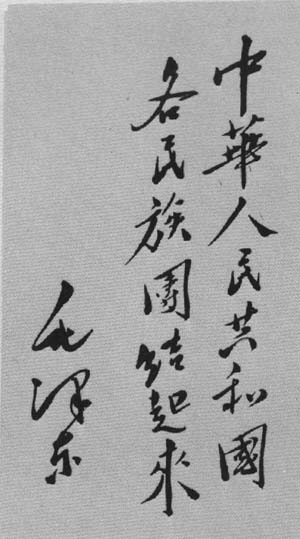 中華人民共和國
各民族團結起來
毛澤东